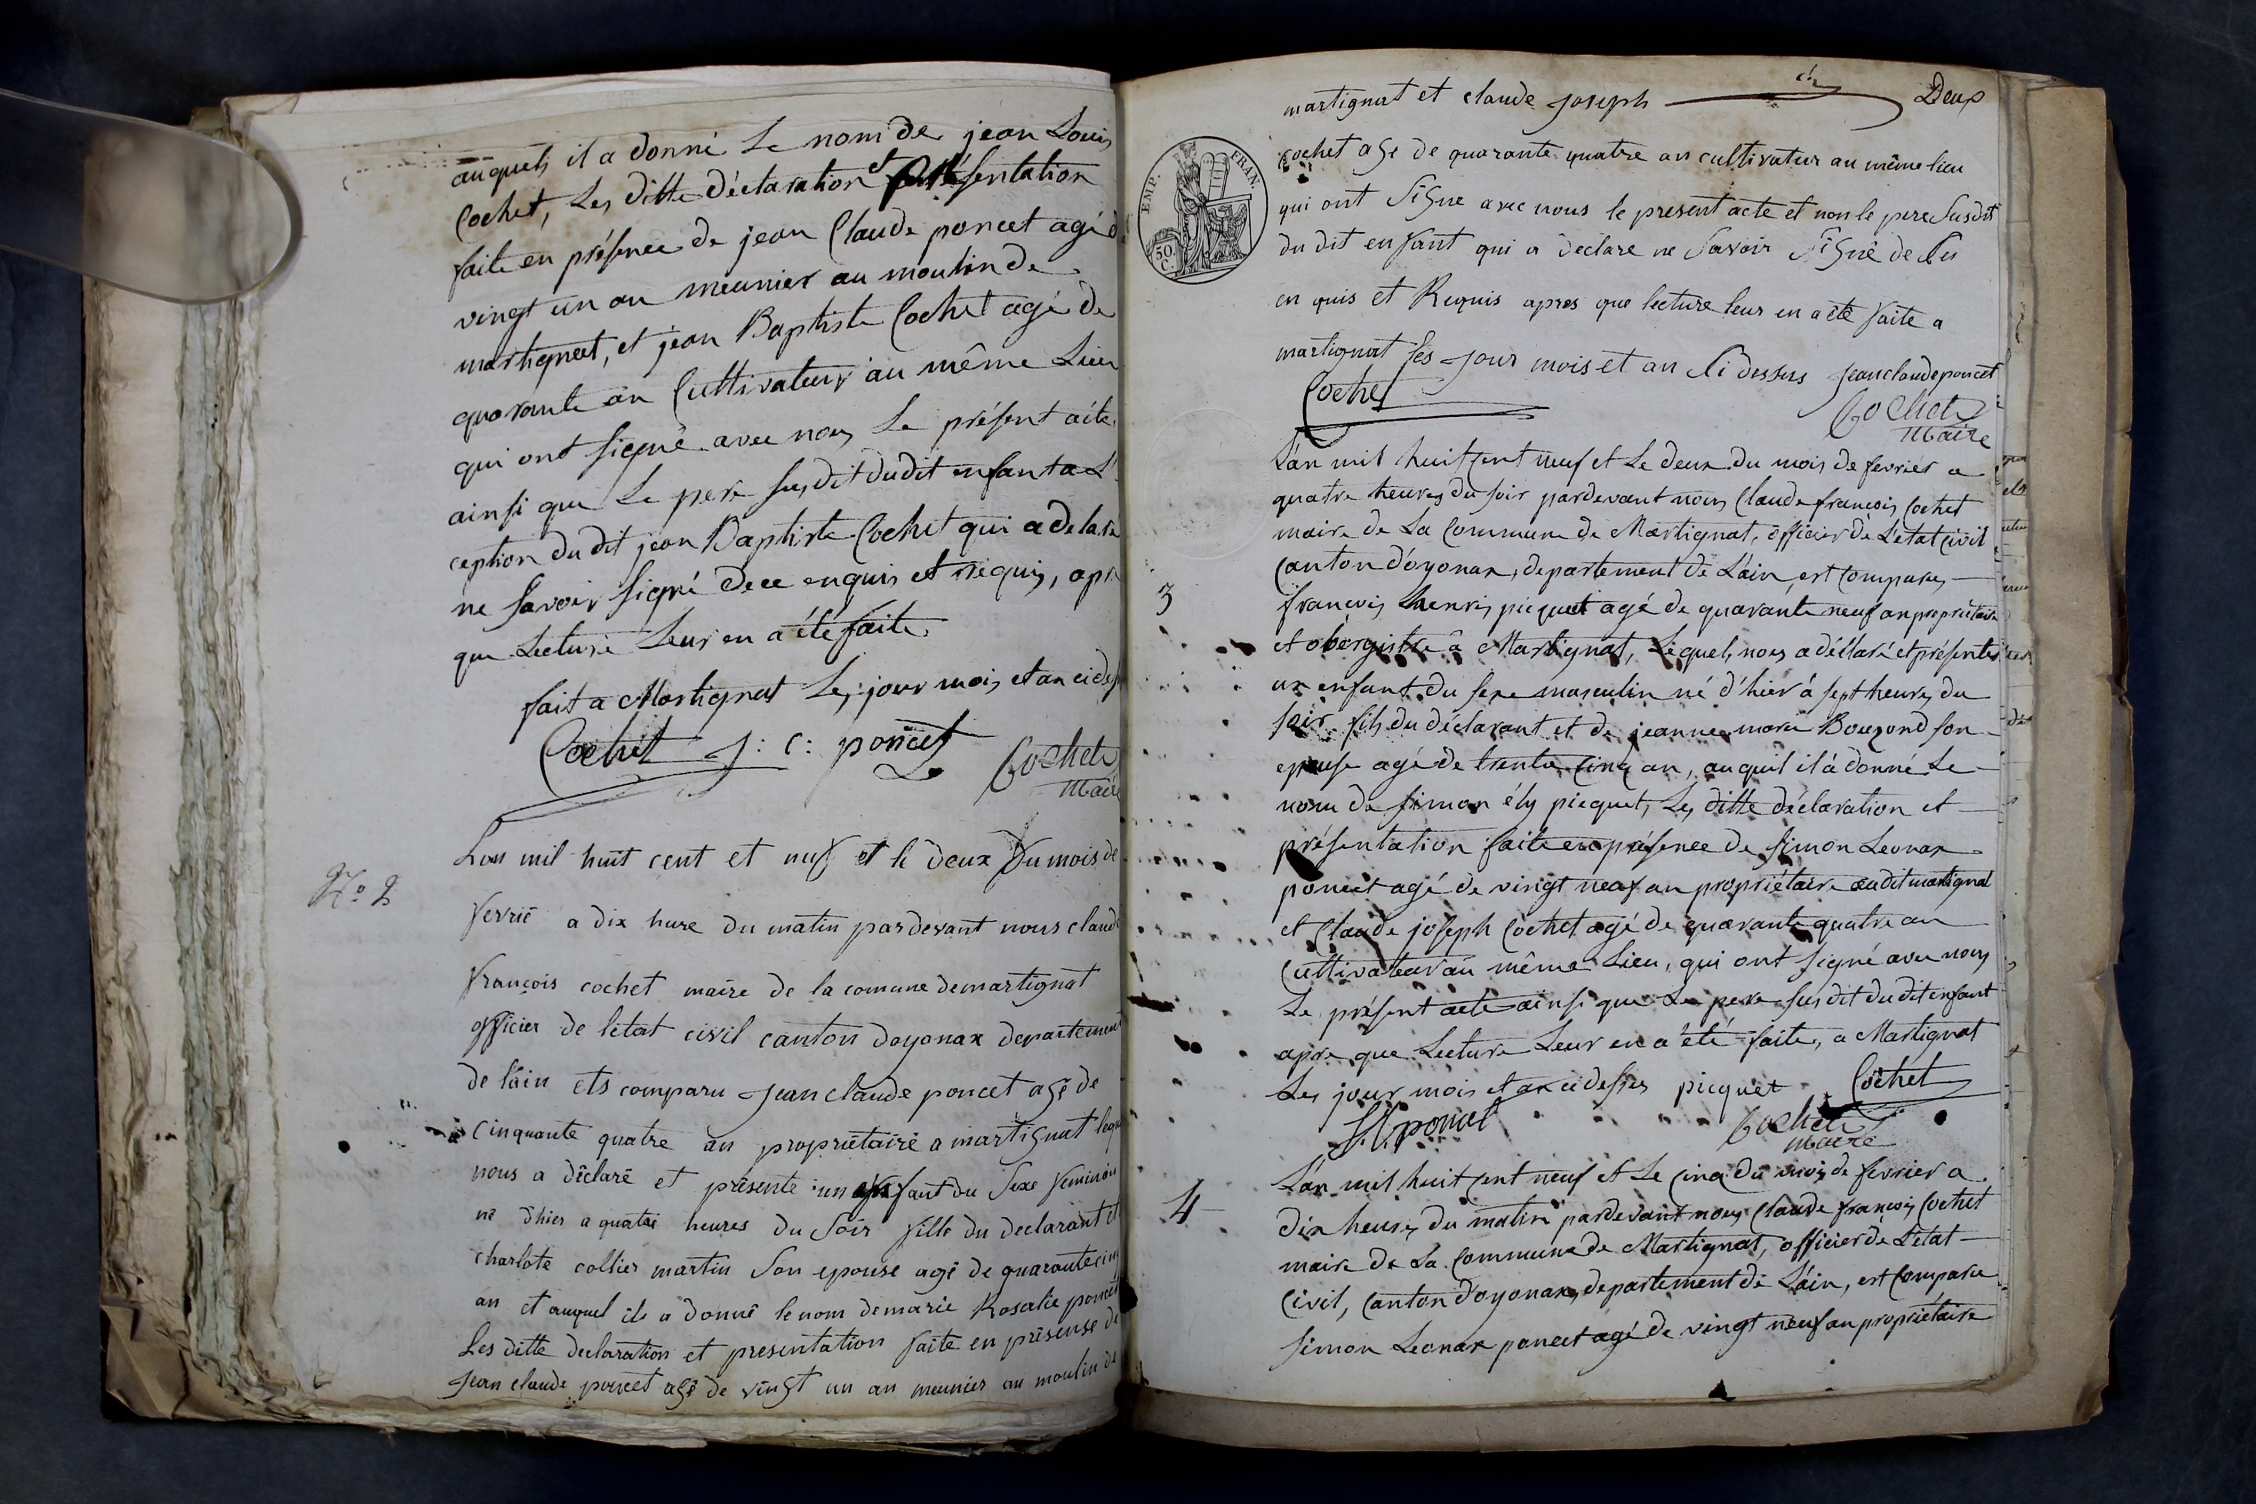 auquel il a donné Le nom de jean Louis
Cochet, Les ditte déclaration et présentation
faite en présence de jean Claude poncet agé d
vingt un an meunier au moulin de
martignat, et jean Baptiste Cochet agé de
quarante an Cultivateur au même Lieu
qui ont signé avec nous Le présent acte
ainsi que Le pere susdit dudit enfant a L'
ception du dit jean Baptiste Cochet qui a delaré
ne savoir signé de ce enquis et requis, apr
que Lecture Leur en a été faite,
fait a Martignat Les jour mois et an cidess
Cochet J: C: poncet Cochet
Maire
N.o 2
Lan mil huit cent et neuf et le deux du mois de
fevrié a dix hure du matin pardevant nous claude
françois cochet maire de la comune de martignat
officier de létat civil canton doyonax departement
de láin ets comparu Jean claude poncet agé de
cinquante quatre an proprietairé a martignat leq
nous a déclaré et présenté un enfant du sexe feminin
né dhier a quatre heures du soir fille du declarant et
charlote collier martin son epouse agé de quarante cinq
an et auquel ils a donné le nom de marie Rosalie poncet
Les ditte declaration et presentation faite en présense de
Jean claude poncet agé de vingt un an meunier au moulin de
martignat et claude Joseph Deux
EMP. FRAN.
50. C.
cochet age de quarante quatre an cultivateur au même lieu
qui ont signe avec nous le present acte et non le pere susdit
du dit enfant qui a declare ne savoir signé de
en quis et Requis apres que lecture leur en a eté faite a
martignat les jour mois et an si dessus Jean claude poncet
Cochet Cochet
Maire
3
L'an mil huit cent neuf et Le deux du mois de fevrier a
quatre heures du soir pardevant nous Claude francois Cochet
maire de La Commune de Martignat, officier de L'etat Civil
Canton d'oyonax, departement de L'ain, est Comparu,
francois henris picquet agé de quarante neuf an proprietaire
et obergistre à Martignat, Lequel, nous a déllaré et présenter
un enfant du sexe masculin né d'hier à sept heures du
soir fils du déclarant et de jeanne marie Bouzond son
epouse agé de trente Cinq an, auquel il à donné Le
nom de simon ély picquet, Les ditte déclaration et
présentation faite en présence de simon Leonax
poncet agé de vingt neuf an propriétaire audit martignat
et Claude joseph Cochet agé de quarante quatre an
Cultivateur au même Lieu, qui ont signé avec nous
Le présent acte ainsi que Le pere susdit du dit enfant
apre que Lecture Leur en a été faite, a Martignat
Les jour mois et an cidesses picquet Cochet
S. L. poncet Cochet
Maire
4
L'an mil huit cent neuf et Le cinq du mois de fevrier a
dix heures du matin pardevant nous Claude francois Cochet
maire de La Commune de Martignat, officier de L'etat
Civil, Canton d'oyonax, departement de L'áin, est Comparu
simon Leonax poncet agé de vingt neuf an propriétaire